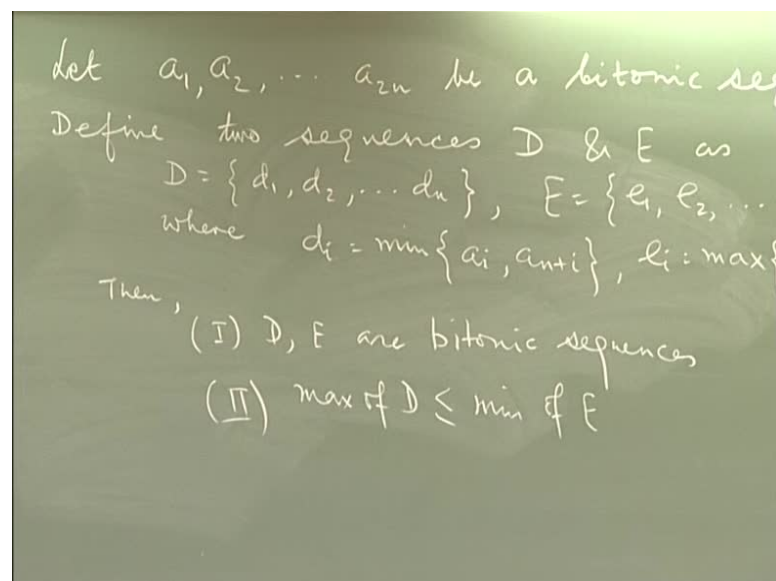 Let a₁, a₂, ... a₂ₙ be a bitonic seq
Define two sequences D & E as
D = { d₁, d₂, ... dₙ }, E = { e₁, e₂, ...
where dᵢ = min { aᵢ, aₙ₊ᵢ }, eᵢ : max {
Then,
(I) D, E are bitonic sequences
(II) max of D ≤ min of E